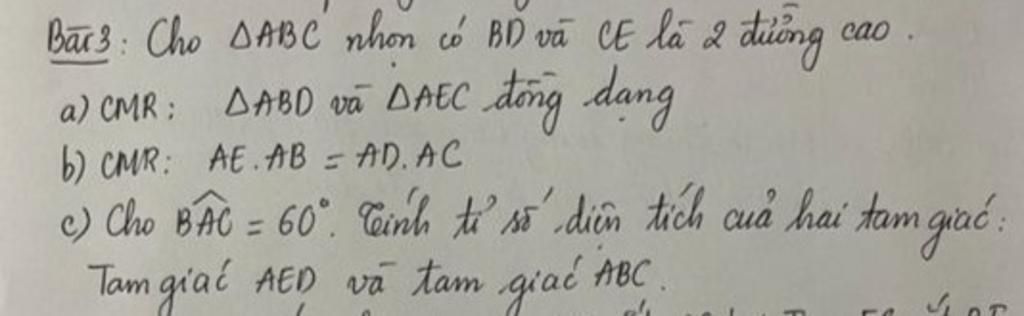 Bài 3: Cho ΔABC nhọn có BD và CE là 2 đường cao.
a) CMR: ΔABD và ΔAEC đồng dạng
b) CMR: AE.AB = AD.AC
c) Cho BAC = 60°. Tính tỉ số diện tích của hai tam giác:
Tam giác AED và tam giác ABC.